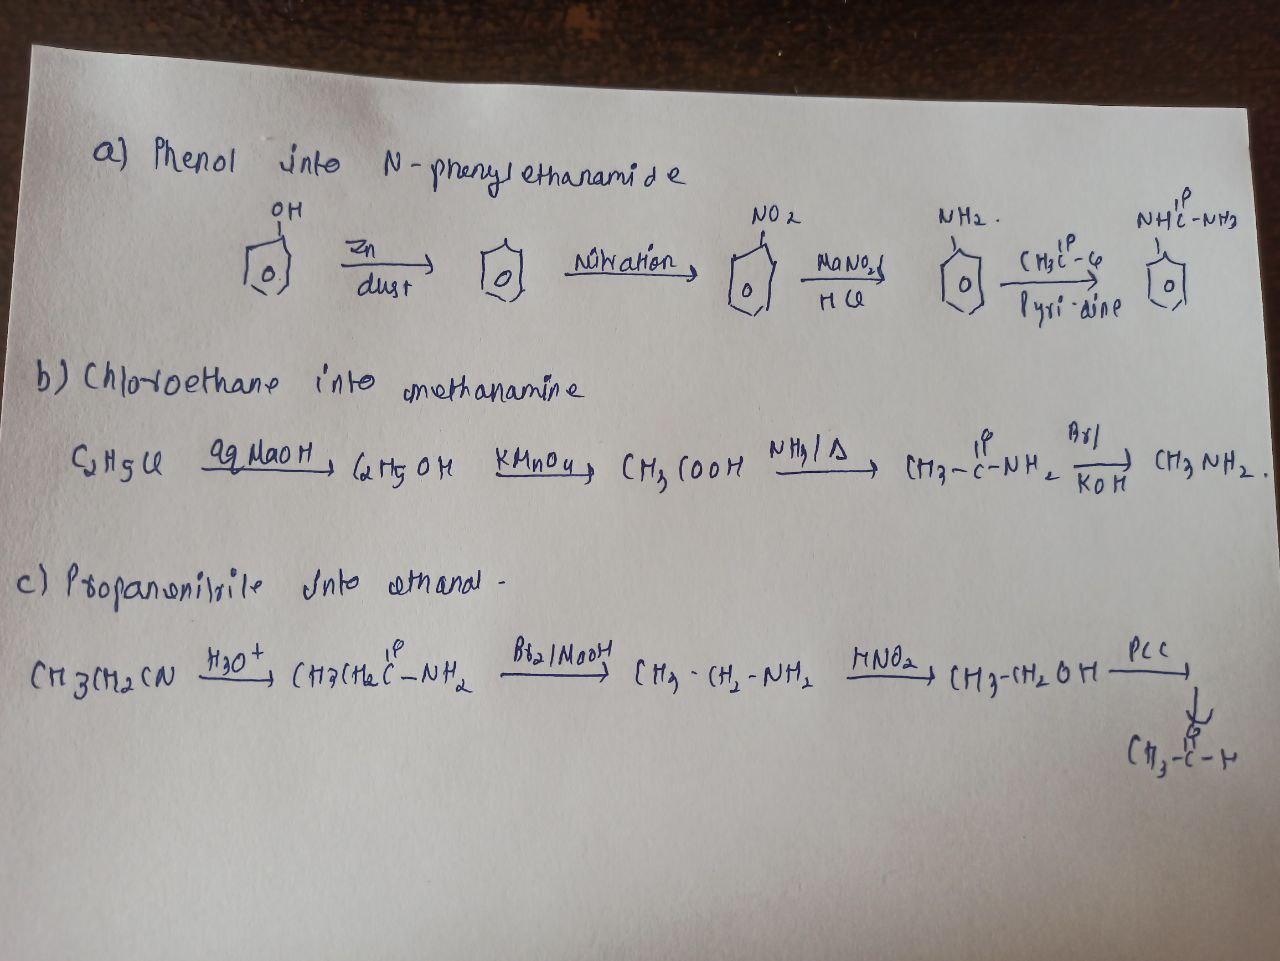 a) Phenol into N-phenylethanamide
OH NO2 NH2. NHC-NH3
Zn dust Nitration NaNO2/ HCl CH3C-Cl Pyri-dine
b) Chloroethane into methanamine
C2H5Cl aq NaOH C2H5OH KMnO4 CH3COOH NH3/Δ CH3-C-NH2 Br/ KOH CH3NH2.
c) Propanenitrile into ethanal-
CH3CH2CN H3O+ CH3CH2C-NH2 Br2/NaOH CH3-CH2-NH2 HNO2 CH3-CH2OH PCC
CH3-C-H